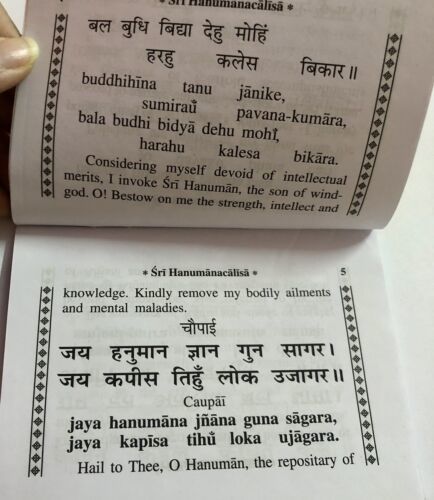 * Śrī Hanumānacālīsā *
बल बुधि बिद्या देहु मोहिं
हरहु कलेस बिकार॥
buddhihīna tanu jānike,
sumiraũ pavana-kumāra,
bala budhi bidyā dehu mohĩ,
harahu kalesa bikāra.
Considering myself devoid of intellectual
merits, I invoke Śrī Hanumān, the son of wind-
god. O! Bestow on me the strength, intellect and
* Śrī Hanumānacālīsā * 5
knowledge. Kindly remove my bodily ailments
and mental maladies.
चौपाई
जय हनुमान ज्ञान गुन सागर।
जय कपीस तिहुँ लोक उजागर॥
Caupāī
jaya hanumāna jñāna guna sāgara,
jaya kapīsa tihũ loka ujāgara.
Hail to Thee, O Hanumān, the repositary of